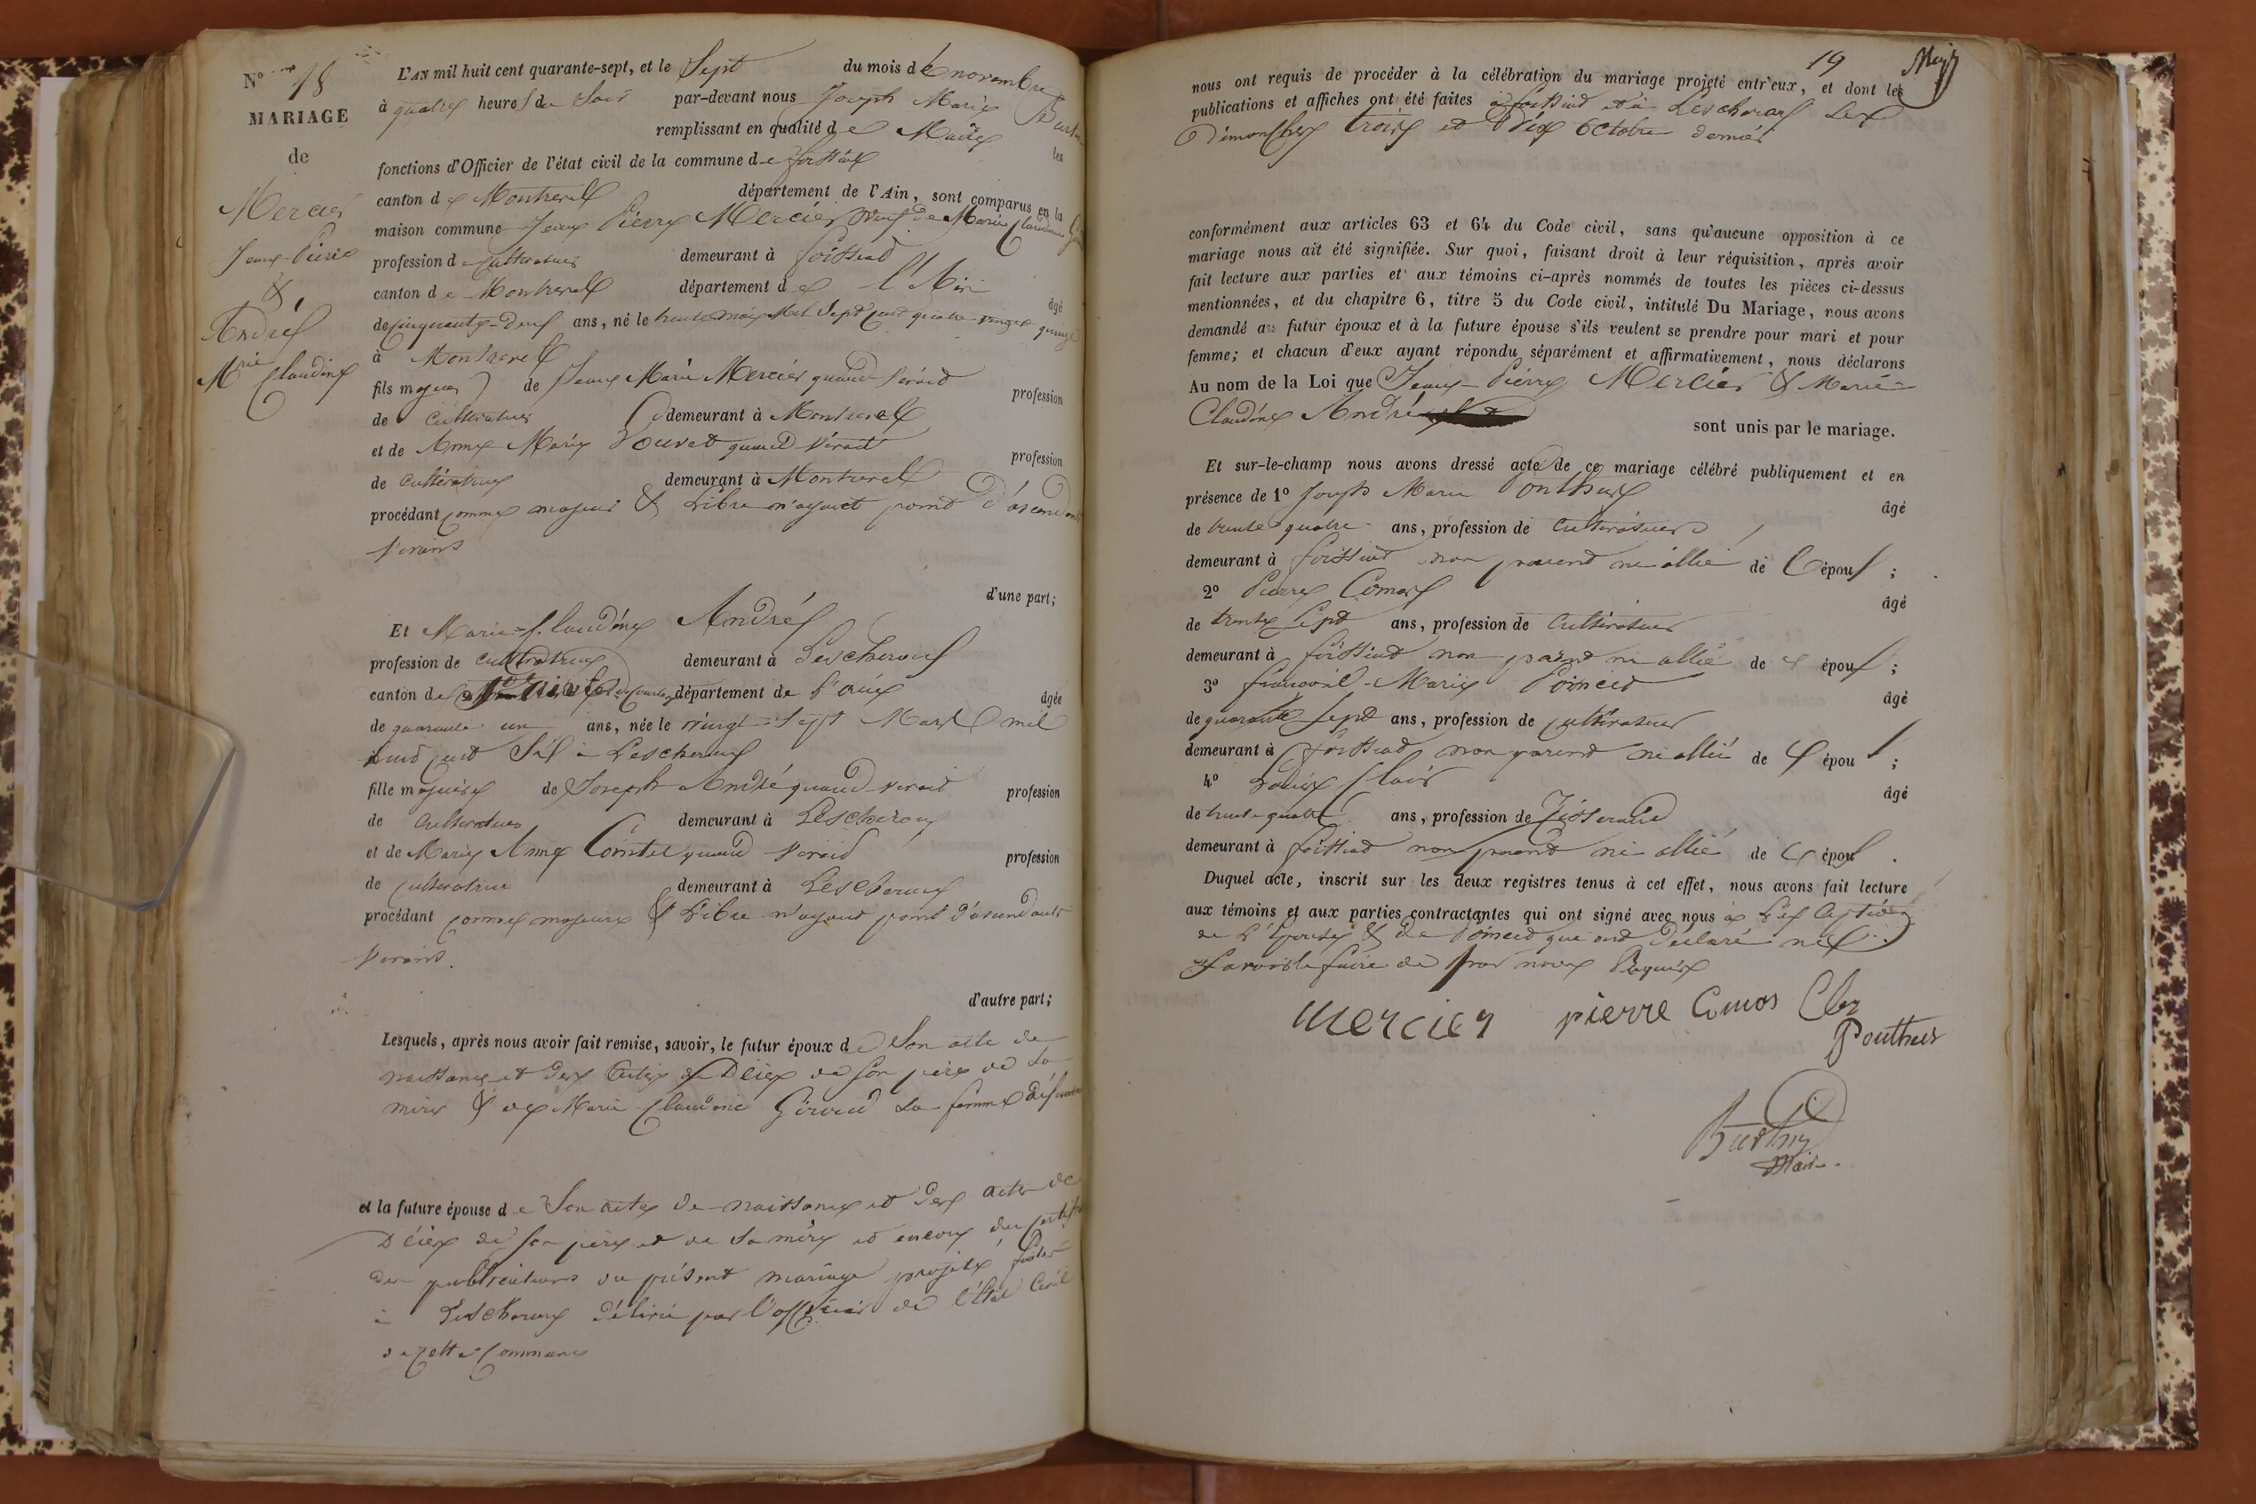 N° 18
MARIAGE
de
Mercier
Jean-Pierre
&
André
Mrie Claudine
L'AN mil huit cent quarante-sept, et le Sept du mois de novembre
à quatre heures du Soir par-devant nous Joseph Marie
remplissant en qualité de Maire les
fonctions d'Officier de l'état civil de la commune de foissiat
canton de Montrevel département de l'Ain, sont comparus en la
maison commune Jean Pierre Mercier veuf de Marie Claudine
profession de Cultivateur demeurant à foissiat
canton de Montrevel département de l'Ain âgé
de cinquante-deux ans, né le trente mai mil Sept cent quatre vingt quinze
à Montrevel
fils majeur de Jean Marie Mercier quand vivait profession
de Cultivateur demeurant à Montrevel
et de Anne Marie Bouvet quand vivait profession
de Cultivatrice demeurant à Montrevel
procédant comme majeur & Libre n'ayant point d'ascendants
vivans
d'une part;
Et Marie-Claudine André
profession de cultivatrice demeurant à Lescheroux
canton de département de l'ain âgée
de quarante un ans, née le vingt-Sept Mars mil
huit cent Six à Lescheroux
fille majeure de Joseph André quand vivait profession
de Cultivateur demeurant à Lescheroux
et de Marie Anne Comtet quand vivait profession
de cultivatrice demeurant à Lescheroux
procédant comme majeure & Libre n'ayant point d'ascendants
vivans.
d'autre part;
Lesquels, après nous avoir fait remise, savoir, le futur époux de Son acte de
naissance et des actes de Décès de son père de sa
mère & de Marie Claudine Giroud sa femme défunte
et la future épouse de Son acte de naissance et des actes de
Décès de son père et de sa mère et encore du certificat
des publications du présent mariage projeté faites
à Lescheroux délivré par l'officier de l'état Civil
de cette Commune
19
nous ont requis de procéder à la célébration du mariage projeté entr'eux, et dont les
publications et affiches ont été faites à foissiat et à Lescheroux Les
Dimanches trois et Dix Octobre dernier
conformément aux articles 63 et 64 du Code civil, sans qu'aucune opposition à ce
mariage nous ait été signifiée. Sur quoi, faisant droit à leur réquisition, après avoir
fait lecture aux parties et aux témoins ci-après nommés de toutes les pièces ci-dessus
mentionnées, et du chapitre 6, titre 5 du Code civil, intitulé Du Mariage, nous avons
demandé au futur époux et à la future épouse s'ils veulent se prendre pour mari et pour
femme; et chacun d'eux ayant répondu séparément et affirmativement, nous déclarons
Au nom de la Loi que Jean-Pierre Mercier & Marie-
Claudine André
sont unis par le mariage.
Et sur-le-champ nous avons dressé acte de ce mariage célébré publiquement et en
présence de 1° Joseph Marie Ponthus âgé
de trente quatre ans, profession de Cultivateur
demeurant à foissiat non parent ni allié de l'époux;
2° Pierre Comas âgé
de trente Sept ans, profession de Cultivateur
demeurant à foissiat non parent ni allié de époux;
3° francois-Marie Poincet âgé
de quarante Sept ans, profession de cultivateur
demeurant à foissiat non parent ni allié de époux;
4° Clair âgé
de trente quatre ans, profession de Tisserand
demeurant à foissiat non parent ni allié de époux.
Duquel acte, inscrit sur les deux registres tenus à cet effet, nous avons fait lecture
aux témoins et aux parties contractantes qui ont signé avec nous à L'exception
de L'épouse & de Poincet qui ont Déclaré ne
savoir le faire de par nous Requis
Mercier pierre Comas
Ponthus
Maire